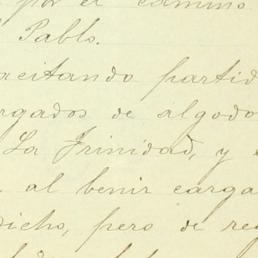 por el camino
Pablo.
acitando partid
rgados de algodo
La Trinidad, y
al benir carga
dicho, pero de re